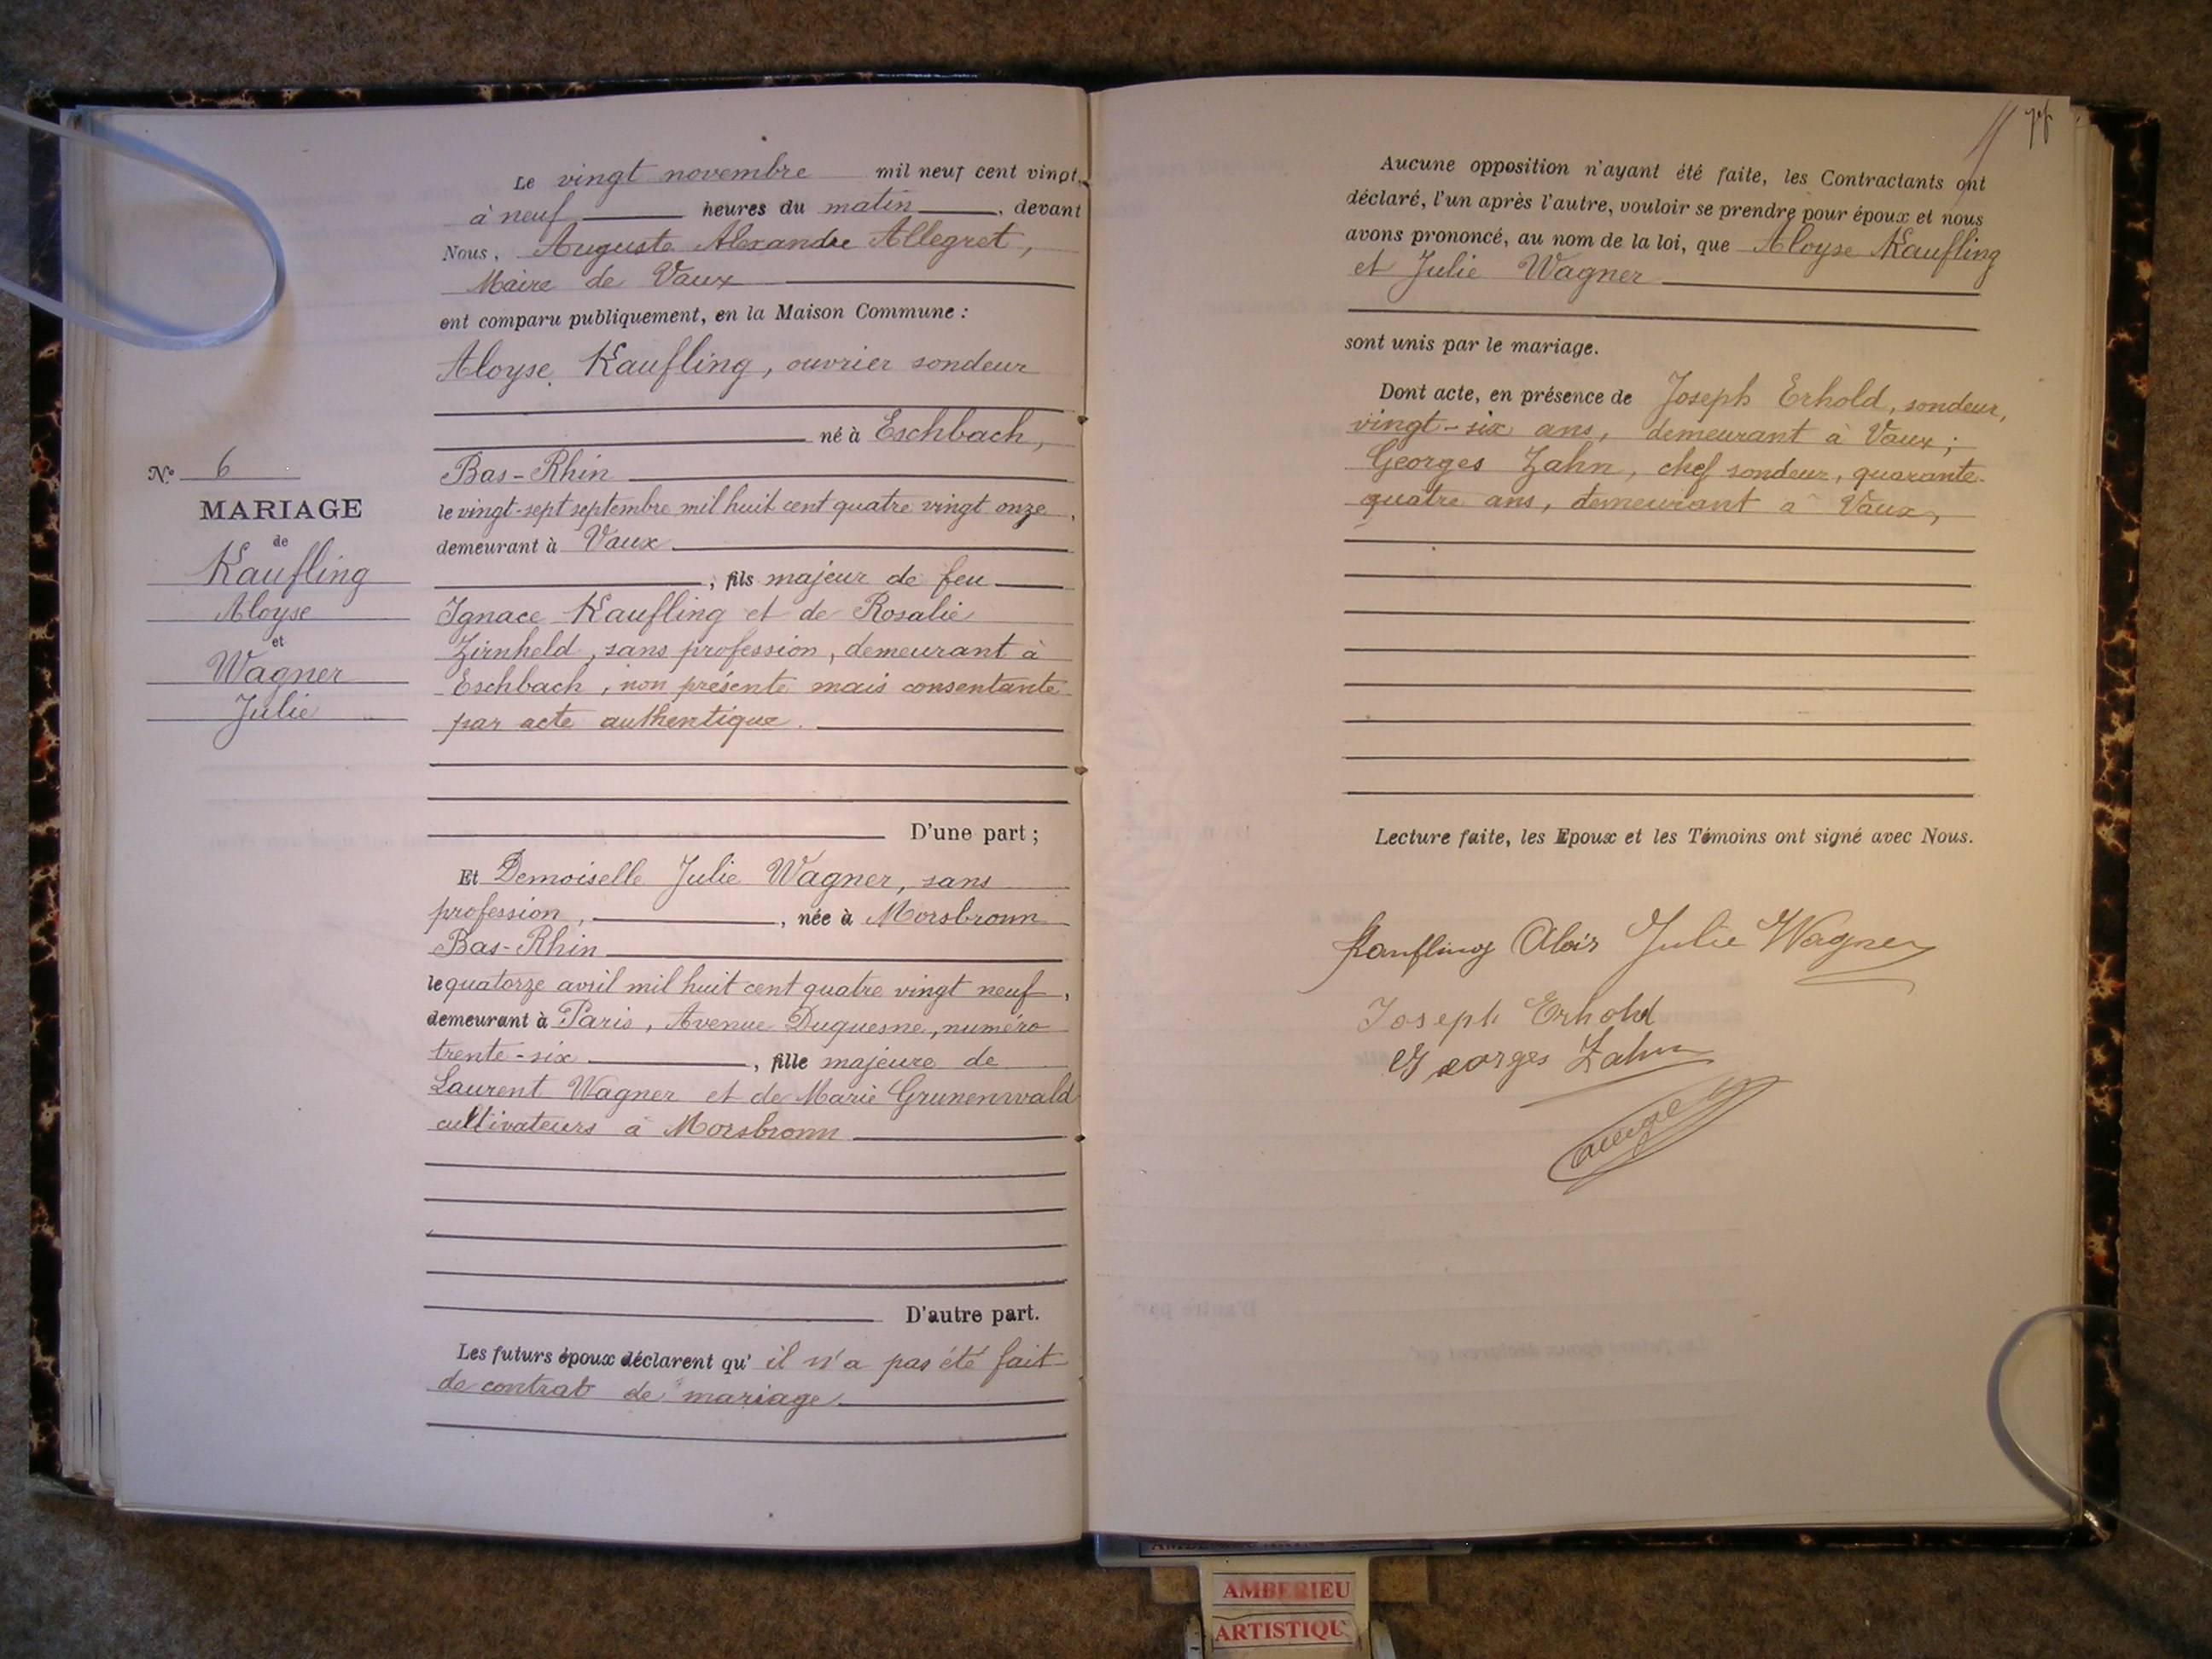 Le vingt novembre mil neuf cent vingt,
à neuf heures du matin, devant
Nous, Auguste Alexandre Allegret,
Maire de Vaux
ont comparu publiquement, en la Maison Commune :
Aloyse Kaufling, ouvrier sondeur
né à Eschbach,
Bas-Rhin
le vingt-sept septembre mil huit cent quatre vingt onze,
demeurant à Vaux
, fils majeur de feu
Ignace Kaufling et de Rosalie
Zirnheld, sans profession, demeurant à
Eschbach, non présente mais consentante
par acte authentique.
D'une part ;
Et Demoiselle Julie Wagner, sans
profession, , née à Morsbronn
Bas-Rhin
le quatorze avril mil huit cent quatre vingt neuf,
demeurant à Paris, Avenue Duquesne, numéro
trente-six , fille majeure de
Laurent Wagner et de Marie Grunenwald
cultivateurs à Morsbronn
D'autre part.
Les futurs époux déclarent qu' il n'a pas été fait
de contrat de mariage.
N° 6
MARIAGE
de
Kaufling
Aloyse
et
Wagner
Julie
Aucune opposition n'ayant été faite, les Contractants ont
déclaré, l'un après l'autre, vouloir se prendre pour époux et nous
avons prononcé, au nom de la loi, que Aloyse Kaufling
et Julie Wagner
sont unis par le mariage.
Dont acte, en présence de Joseph Erhold, sondeur,
vingt-six ans, demeurant à Vaux ;
Georges Zahn, chef sondeur, quarante-
quatre ans, demeurant à Vaux,
Lecture faite, les Epoux et les Témoins ont signé avec Nous.
Kaufling Alois Julie Wagner
Joseph Erhold
Georges Zahn
AMBERIEU
ARTISTIQU